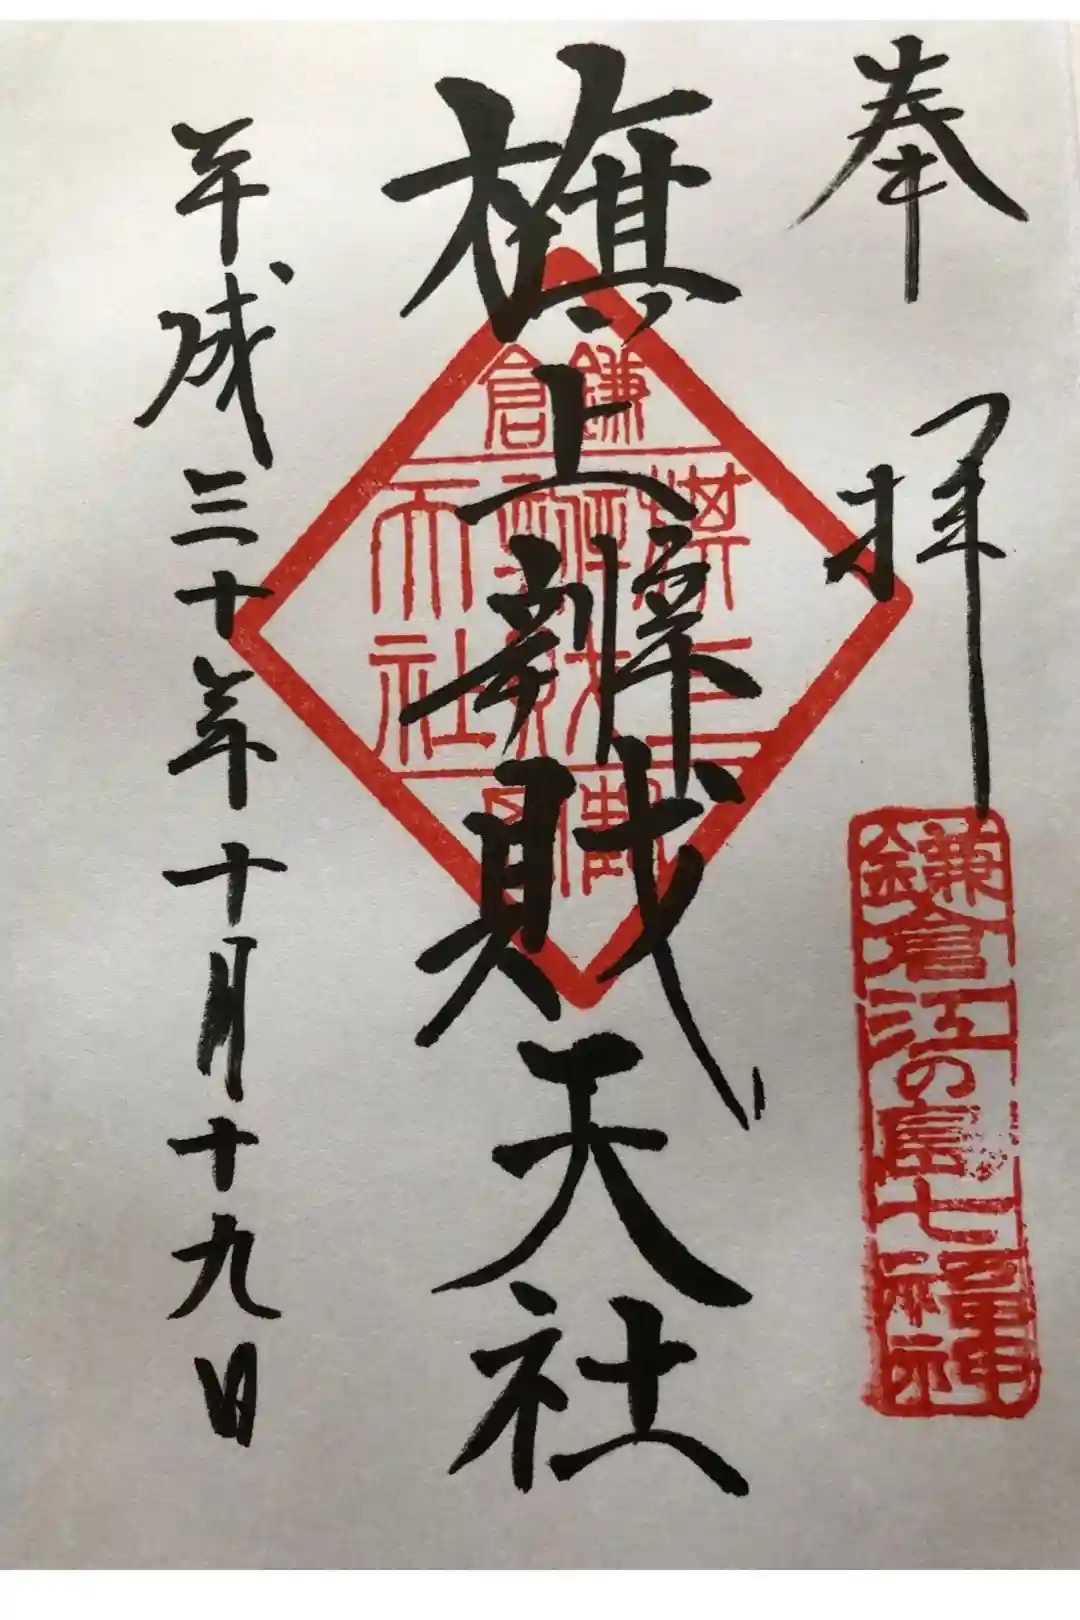 奉拝
鎌倉江の島七福神
旗上辨財天社
鎌倉
旗上
天社
平成三十年十月十九日